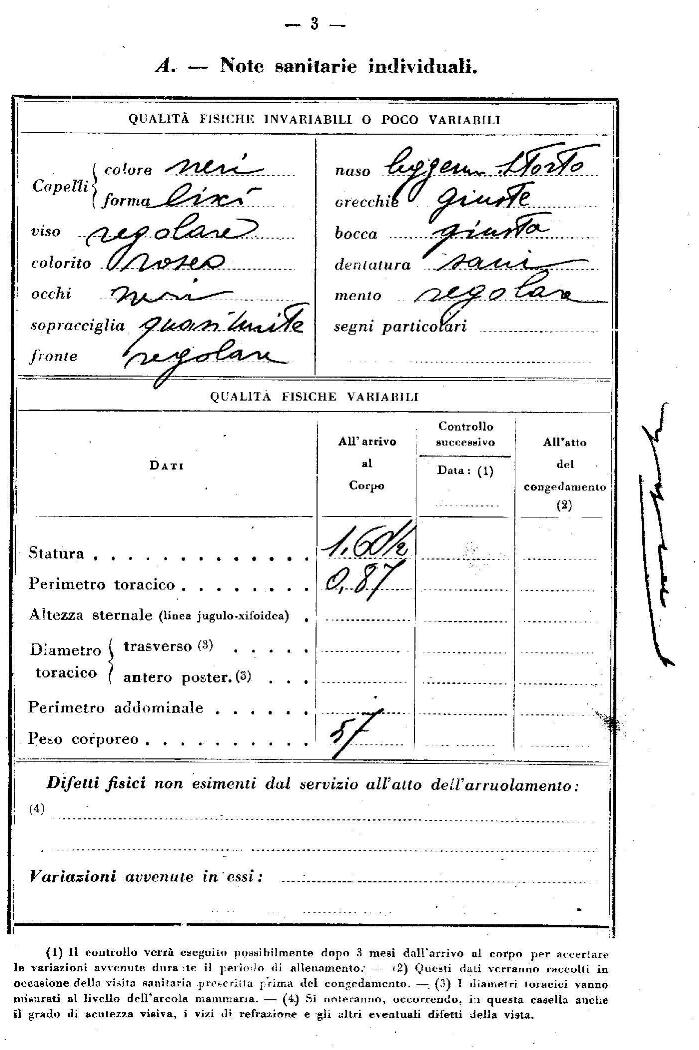 — 3 —
A. — Note sanitarie individuali.
QUALITÀ FISICHE INVARIABILI O POCO VARIABILI
Capelli { colore neri
forma lisci
viso regolare
colorito roseo
occhi neri
sopracciglia quasi unite
fronte regolare
naso leggerm. storto
orecchie giuste
bocca giusta
dentatura sana
mento regolare
segni particolari
QUALITÀ FISICHE VARIABILI
DATI
All'arrivo
al
Corpo
Controllo
successivo
Data: (1)
All'atto
del
congedamento
(2)
Statura 1.60½
Perimetro toracico 0,87
Altezza sternale (linea jugulo-xifoidea)
Diametro toracico { trasverso (3)
antero poster. (3)
Perimetro addominale
Peso corporeo 57
Difetti fisici non esimenti dal servizio all'atto dell'arruolamento:
(4)
Variazioni avvenute in essi:
(1) Il controllo verrà eseguito possibilmente dopo 3 mesi dall'arrivo al corpo per accertare
le variazioni avvenute durante il periodo di allenamento. — (2) Questi dati verranno raccolti in
occasione della visita sanitaria prescritta prima del congedamento. — (3) I diametri toracici vanno
misurati al livello dell'areola mammaria. — (4) Si noteranno, occorrendo, in questa casella anche
il grado di acutezza visiva, i vizi di refrazione e gli altri eventuali difetti della vista.